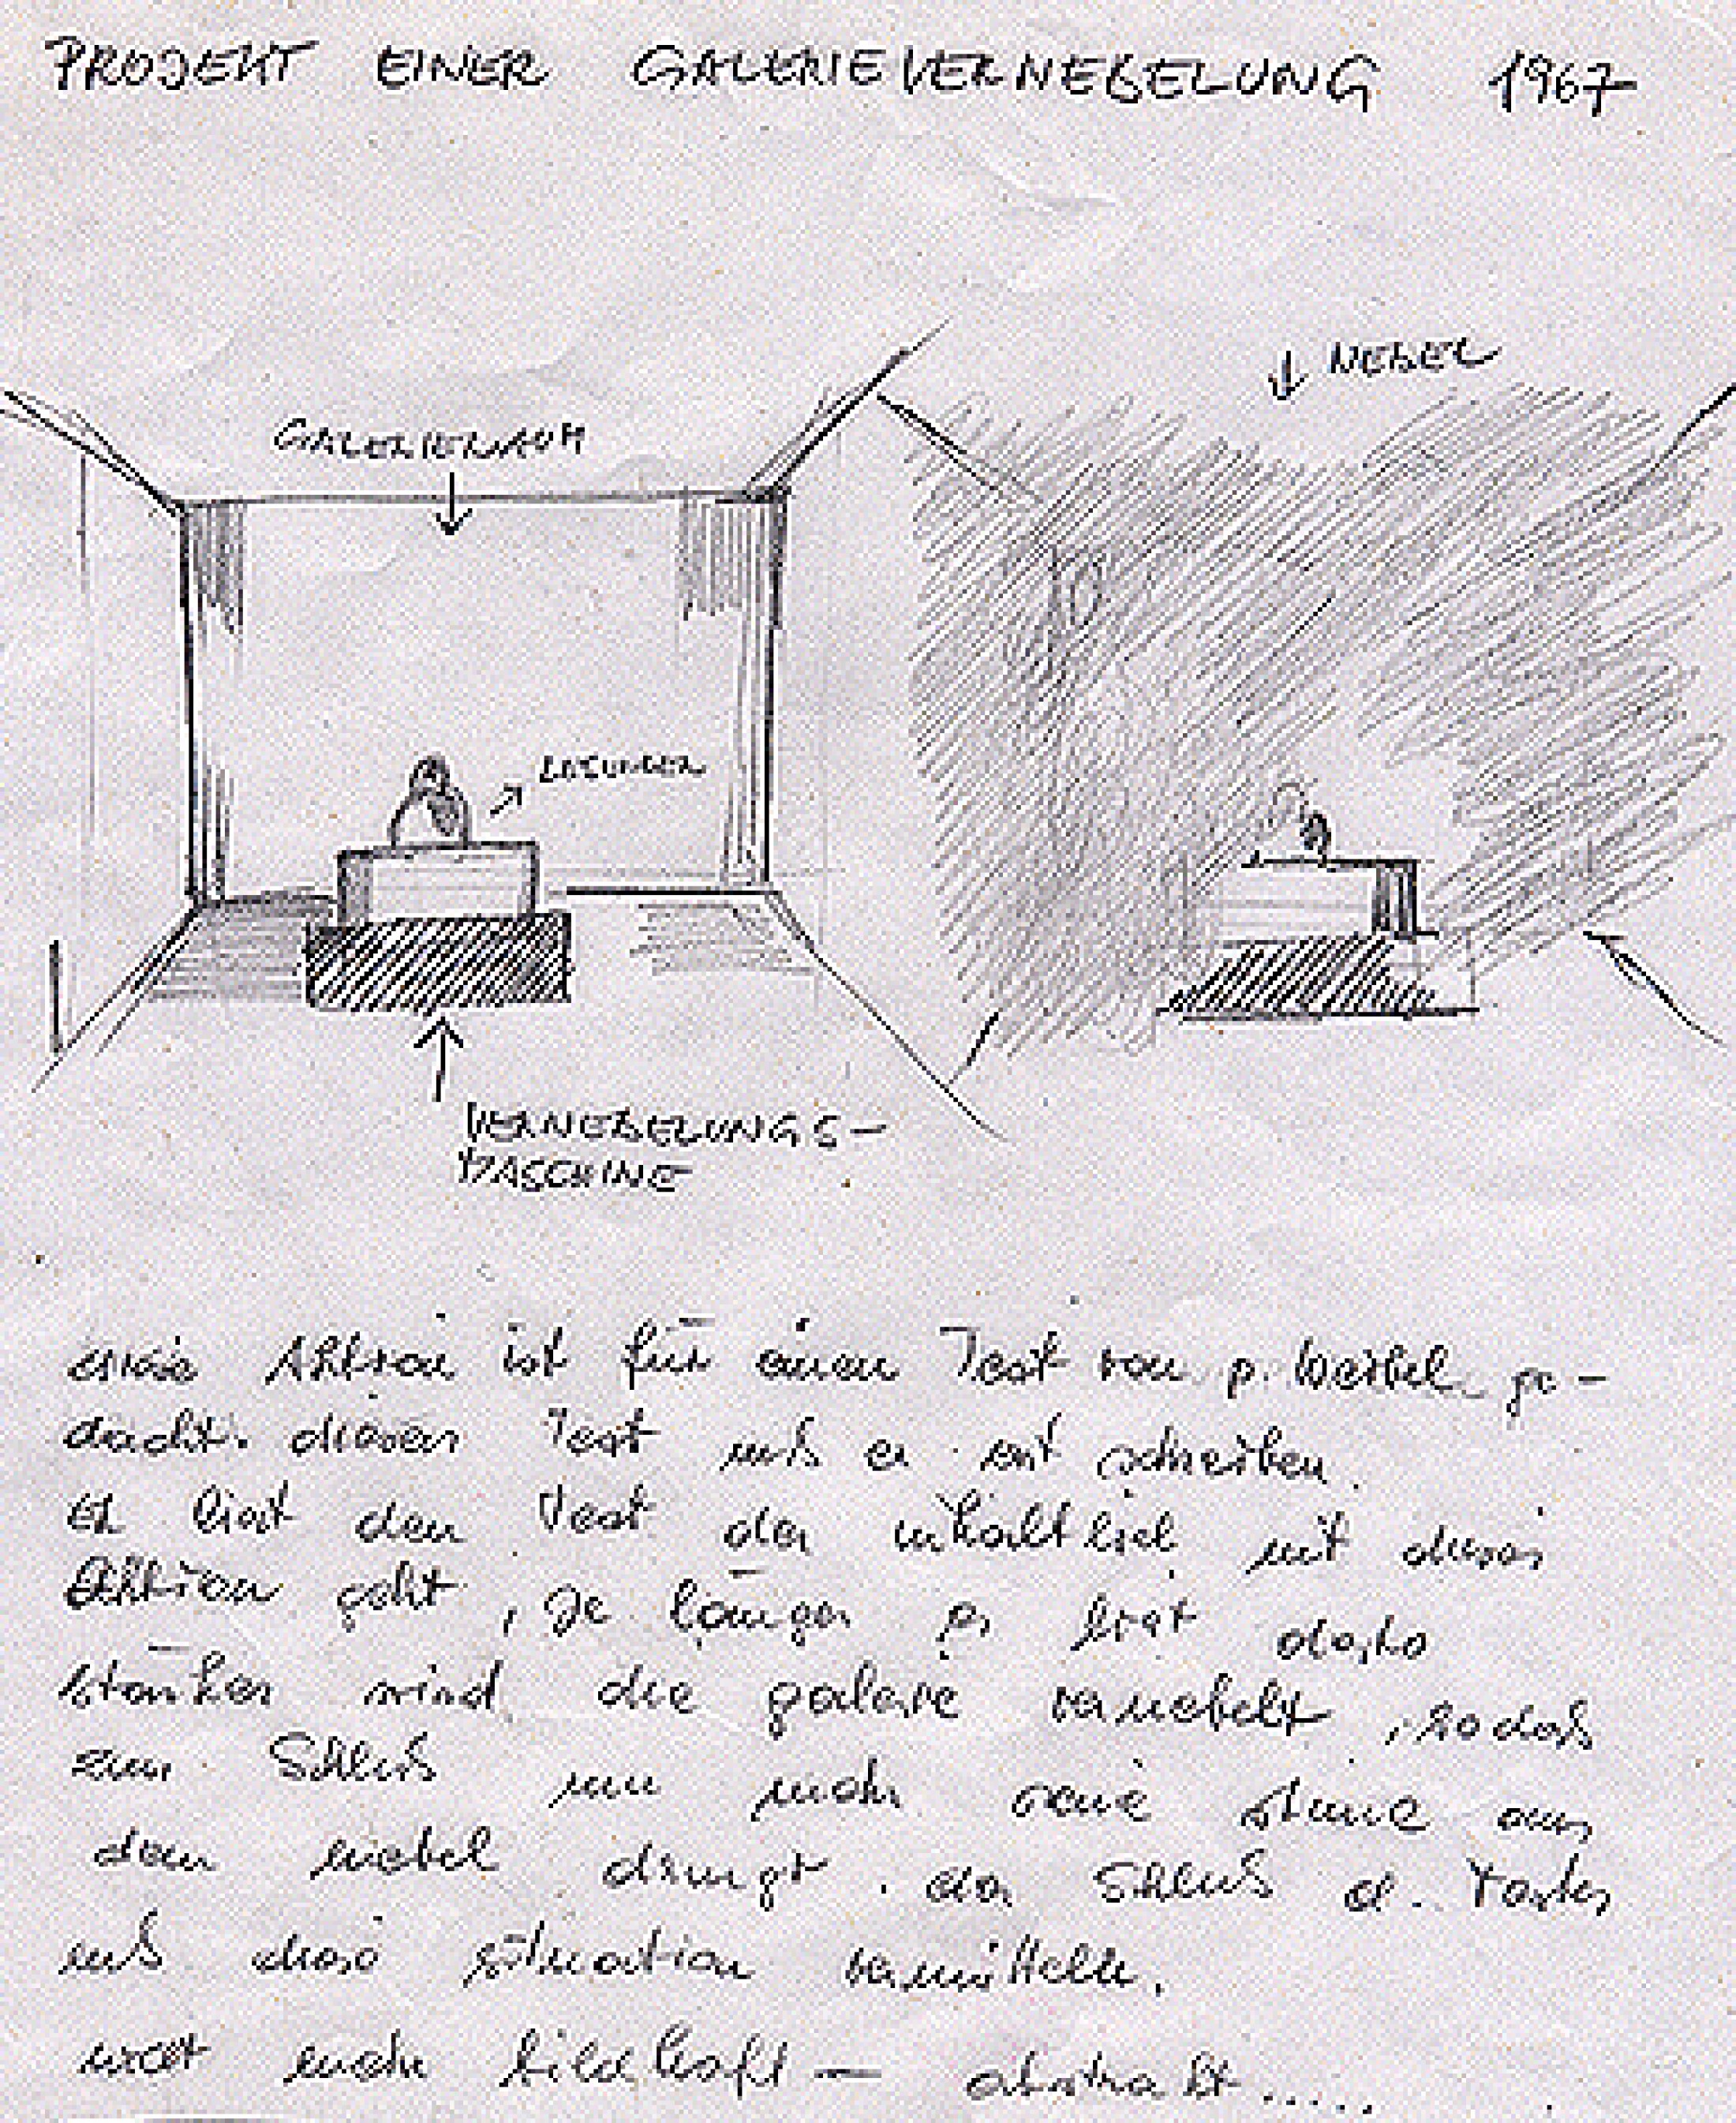 PROJEKT EINER GALERIEVERNEBELUNG 1967
↓ NEBEL
GALERIERAUM
VERNEBELUNGS-
MASCHINE
Aktion ist für einen Text von p. Weibel ge-
dacht. diesen Text muß er erst schreiben.
Er liest den Text der inhaltlich mit dieser
Aktion geht, je länger er liest desto
stärker wird die galerie vernebelt, sodaß
zum Schluß nur mehr seine stimme aus
dem nebel dringt. der Schluß d. Textes
muß diese situation vermitteln.
nicht mehr bildhaft — abstrakt.....